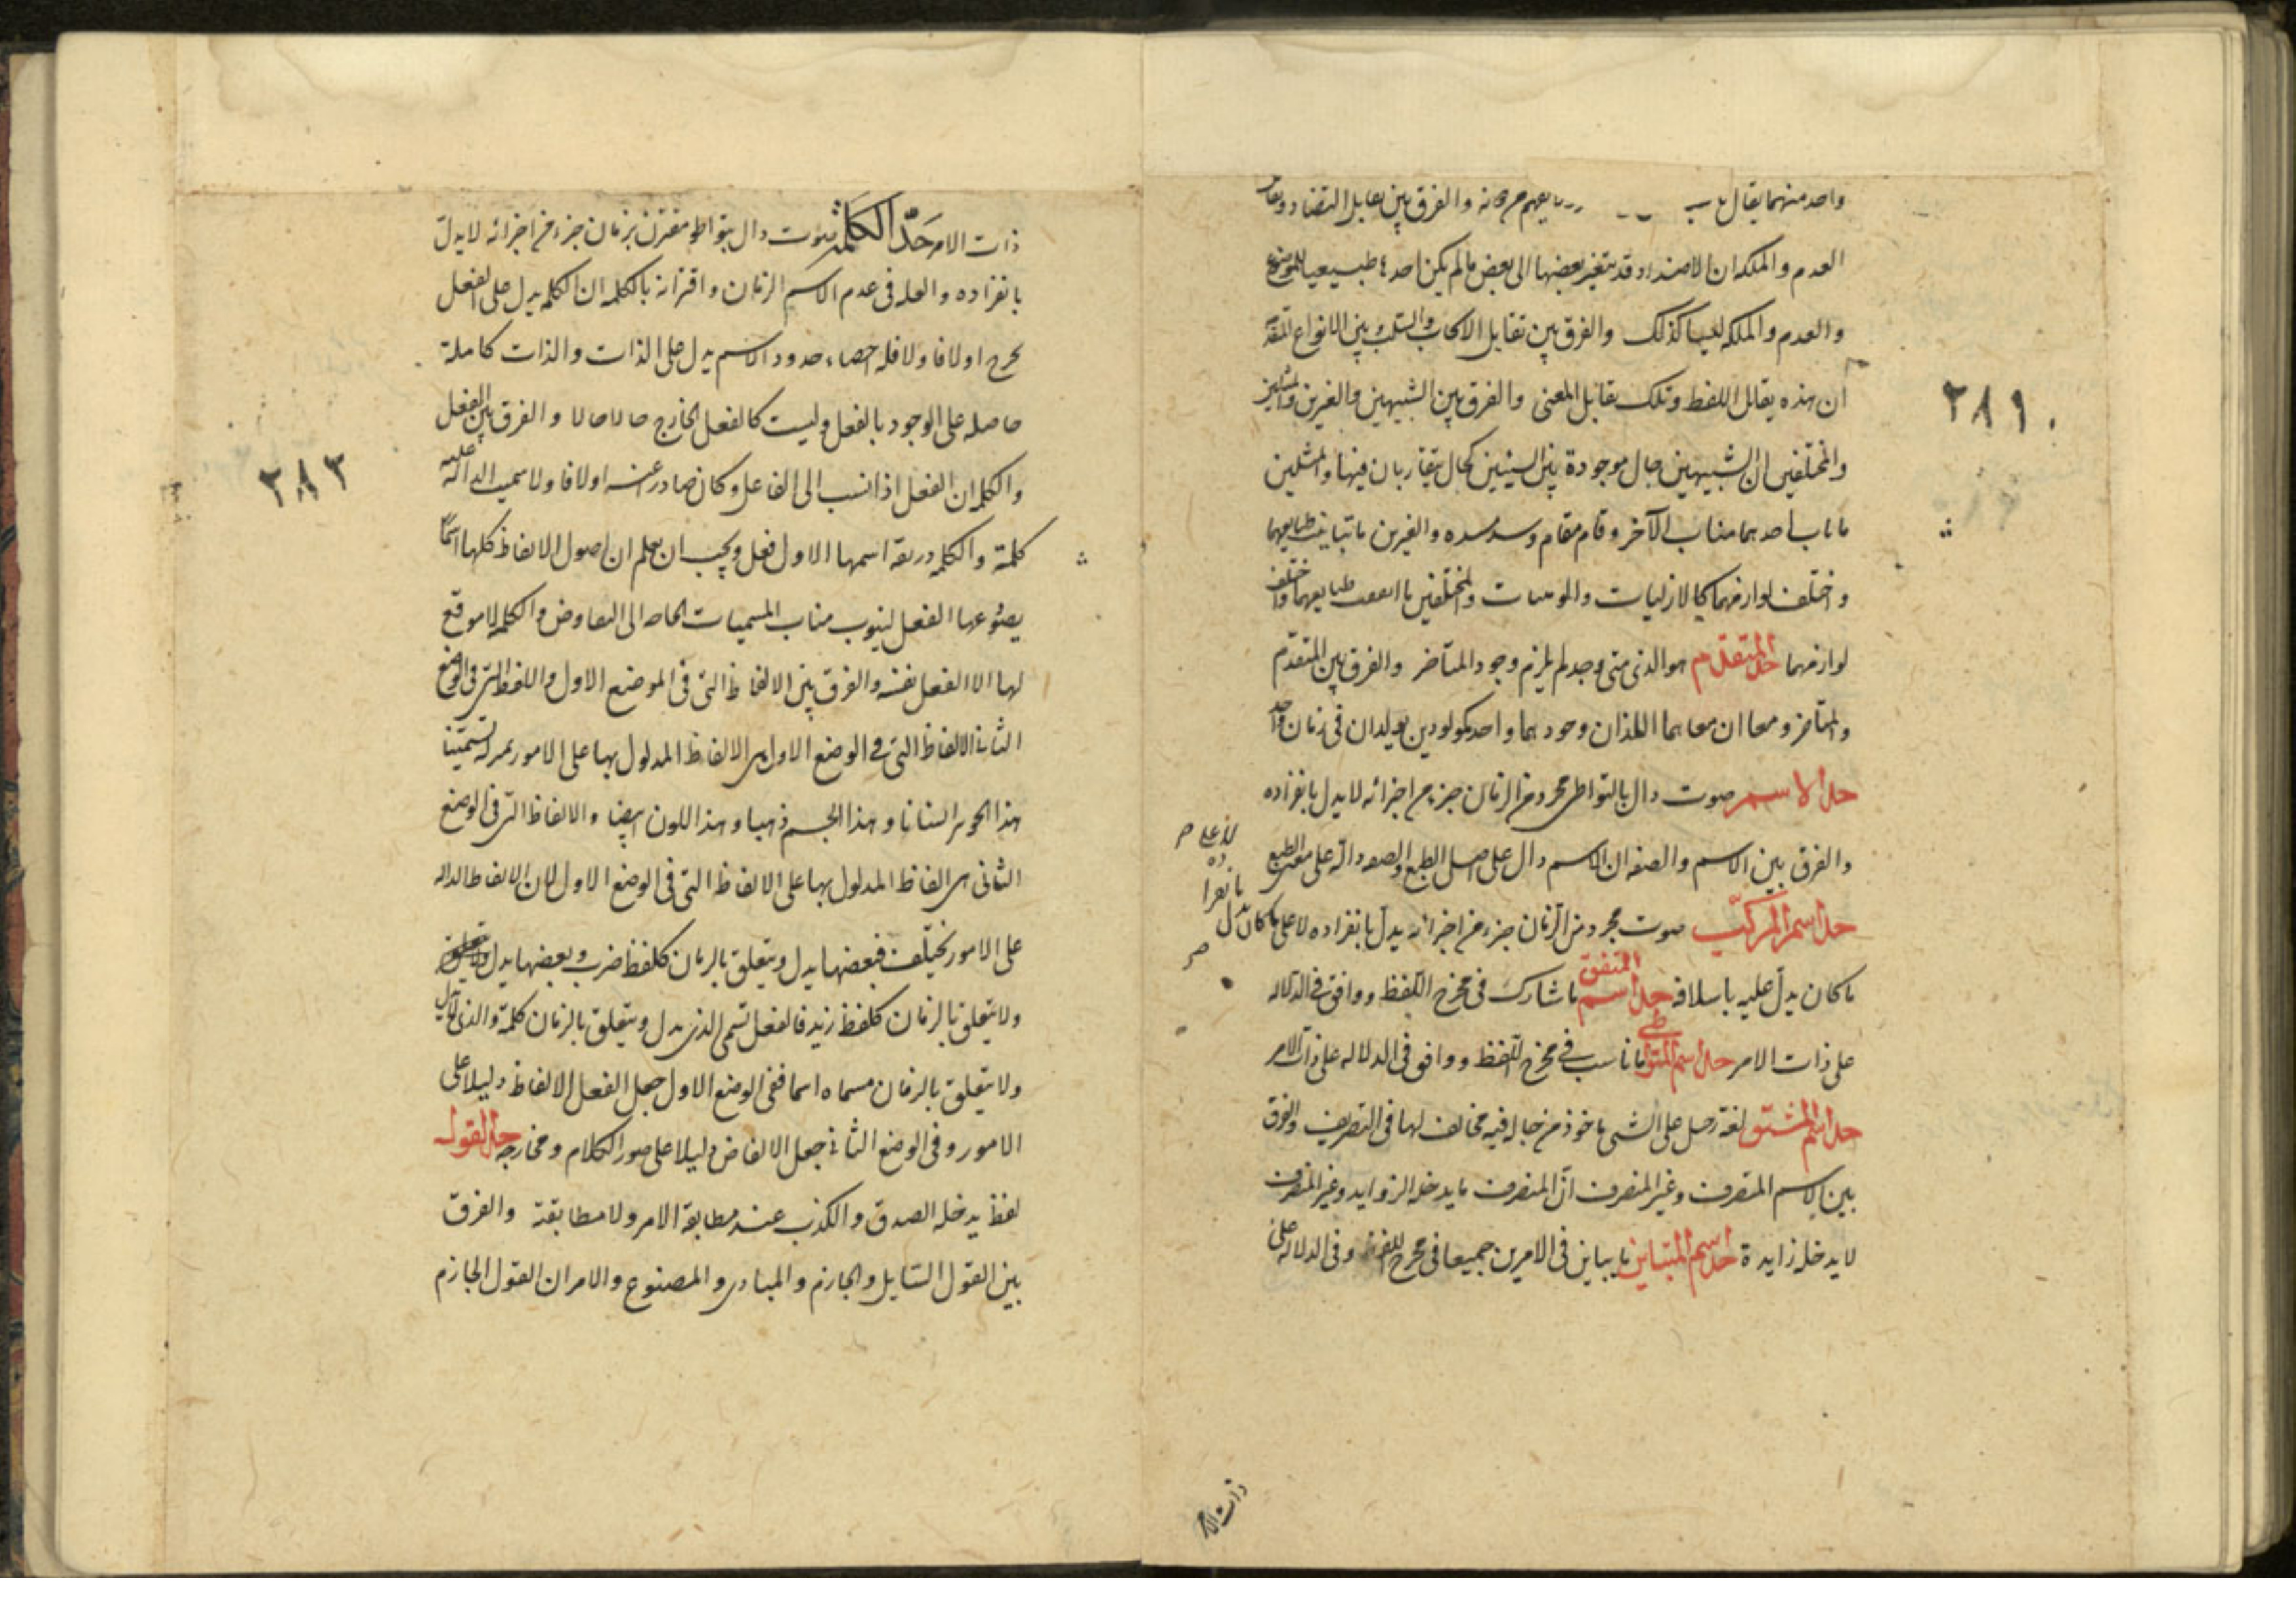 واحد منهما يقال والفرق بين تقابل التضاد وتقابل
العدم والملكه ان الاضداد قد يتغير بعضها الى بعض ما لم يكن احدها طبيعيا للموضوع
والعدم والملكه ليسا كذلك والفرق بين تقابل الايجاب والسلب وبين الانواع المتقدمة
ان هذه تقابل اللفظ وتلك تقابل المعنى والفرق بين الشبيهين والغيرين والمثلين
والمختلفين ان الشبيهين حال موجودة بين الشيئين كحال يتقاربان فيها والمثلين
ما ناب احدهما مناب الآخر وقام مقامه وسد مسده والغيرين ما تباينت طبايعهما
واختلف لوازمهما كالازليات والمختلفين ما اتفقت طبايعهما واختلف
لوازمهما حد المتقدم هو الذى متى وجد لم يلزم وجود المتأخر والفرق بين المتقدم
والمتأخر ومعا ان معا هما اللذان وجودهما واحد كمولودين يولدان فى زمان واحد
حد الاسم صوت دال بالتواطى مجرد من الزمان جزء من اجزائه لا يدل بانفراده
والفرق بين الاسم والصفه ان الاسم دال على اصل الطبع والصفه دالة على الطبع
حد اسم المركب صوت مجرد من الزمان جزء من اجزائه يدل بانفراده لا على ما كان يدل
ما كان يدل عليه باسلافه حد اسم المتفق ما شارك فى مخرج اللفظ ووافق فى الدلاله
على ذات الامر حد اسم المتواطى ما ناسب فى مخرج اللفظ ووافق فى الدلاله على ذات الامر
حد اسم المشتق لغة على الشى ماخوذ من فيه مخالف لها فى التصريف والفرق
بين الاسم المتصرف وغير المتصرف ان المتصرف ما يدخله الزوايد وغير المتصرف
لا يدخله زايدة حد اسم المتباين ما يباين فى الامرين جميعا فى مخرج اللفظ وفى الدلاله على
ذات الامر
٢٨١
ذات الامر حد الكلمة صوت دال بتواطؤ مقترن بزمان جزء من اجزائه لا يدل
بانفراده والعله فى عدم الاسم الزمان واقترانه بالكلمه ان الكلمه يدل على الفعل
يخرج اولا فاولا فله احصاء حدود الاسم يدل على الذات والذات كاملة
حاصله على الوجود بالفعل وليست كالفعل الخارج حالا حالا والفرق بين الفعل
والكلمه ان الفعل اذا نسب الى الفاعل وكان صادر عنه اولا فاولا سميت الدالة عليه
كلمة والكلمه اسمها الاول فعل ويجب ان يعلم ان اصول الالفاظ كلها اسما
الفعل لينوب مناب المسميات الى التفاوض والكلمه لا موقع
لها الا الفعل نفسه والفرق بين الالفاظ التى فى الموضع الاول واللفظ التى فى الوضع
الثانى الالفاظ التى فى الوضع الاول هى الالفاظ المدلول بها على الامور بمنزلة تسميتنا
هذا الجوهر انسانا وهذا الجسم ذهبا وهذا اللون ابيضا والالفاظ التى فى الوضع
الثانى هى الفاظ المدلول بها على الالفاظ التى فى الوضع الاول لان الالفاظ الداله
على الامور تختلف فبعضها يدل ويتعلق بالزمان كلفظ ضرب وبعضها يدل
ولا يتعلق بالزمان كلفظ زيد فالفعل تسمى الذى يدل ويتعلق بالزمان كلمة والذى يدل
ولا يتعلق بالزمان مسماه اسما ففى الوضع الاول جعل الفعل الالفاظ دليلا على
الامور وفى الوضع الثانى جعل الالفاظ دليلا على صور الكلام ومخارجه حد القول
لفظ يدخله الصدق والكذب عند مطابقة الامر ولا مطابقته والفرق
بين القول السايل والجازم والمنادى والمصنوع والامر ان القول الجازم
٢٨٢